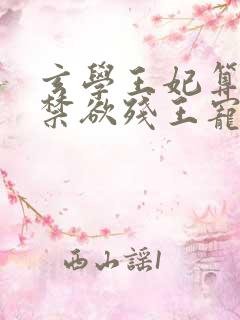 玄學王妃算
禁欲殘王寵
西山謠1